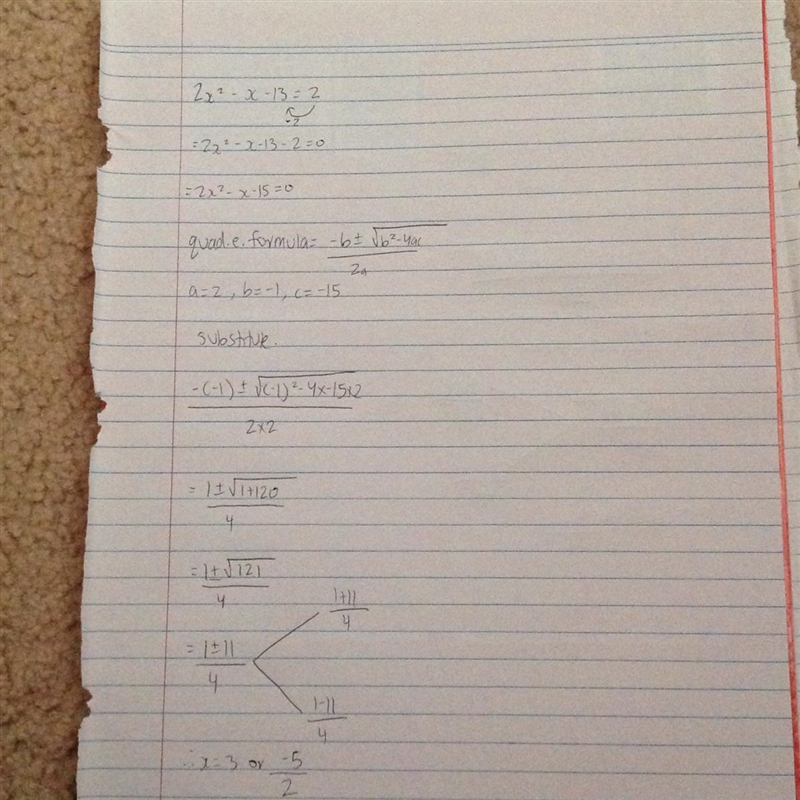 2x² - x - 13 = 2
-2
= 2x² - x - 13 - 2 = 0
= 2x² - x - 15 = 0
quad.e. formula = -b ± √b² - 4ac
2a
a = 2, b = -1, c = -15
substitute.
-(-1) ± √(-1)² - 4x - 15x2
2x2
= 1 ± √1+120
4
= 1 ± √121
4
1+11
4
= 1 ± 11
4
1-11
4
∴ x = 3 or -5
2